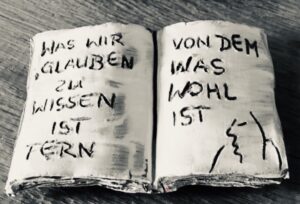 WAS WIR
GLAUBEN
ZU
WISSEN
IST
TERN
VON DEM
WAS
WOHL
IST